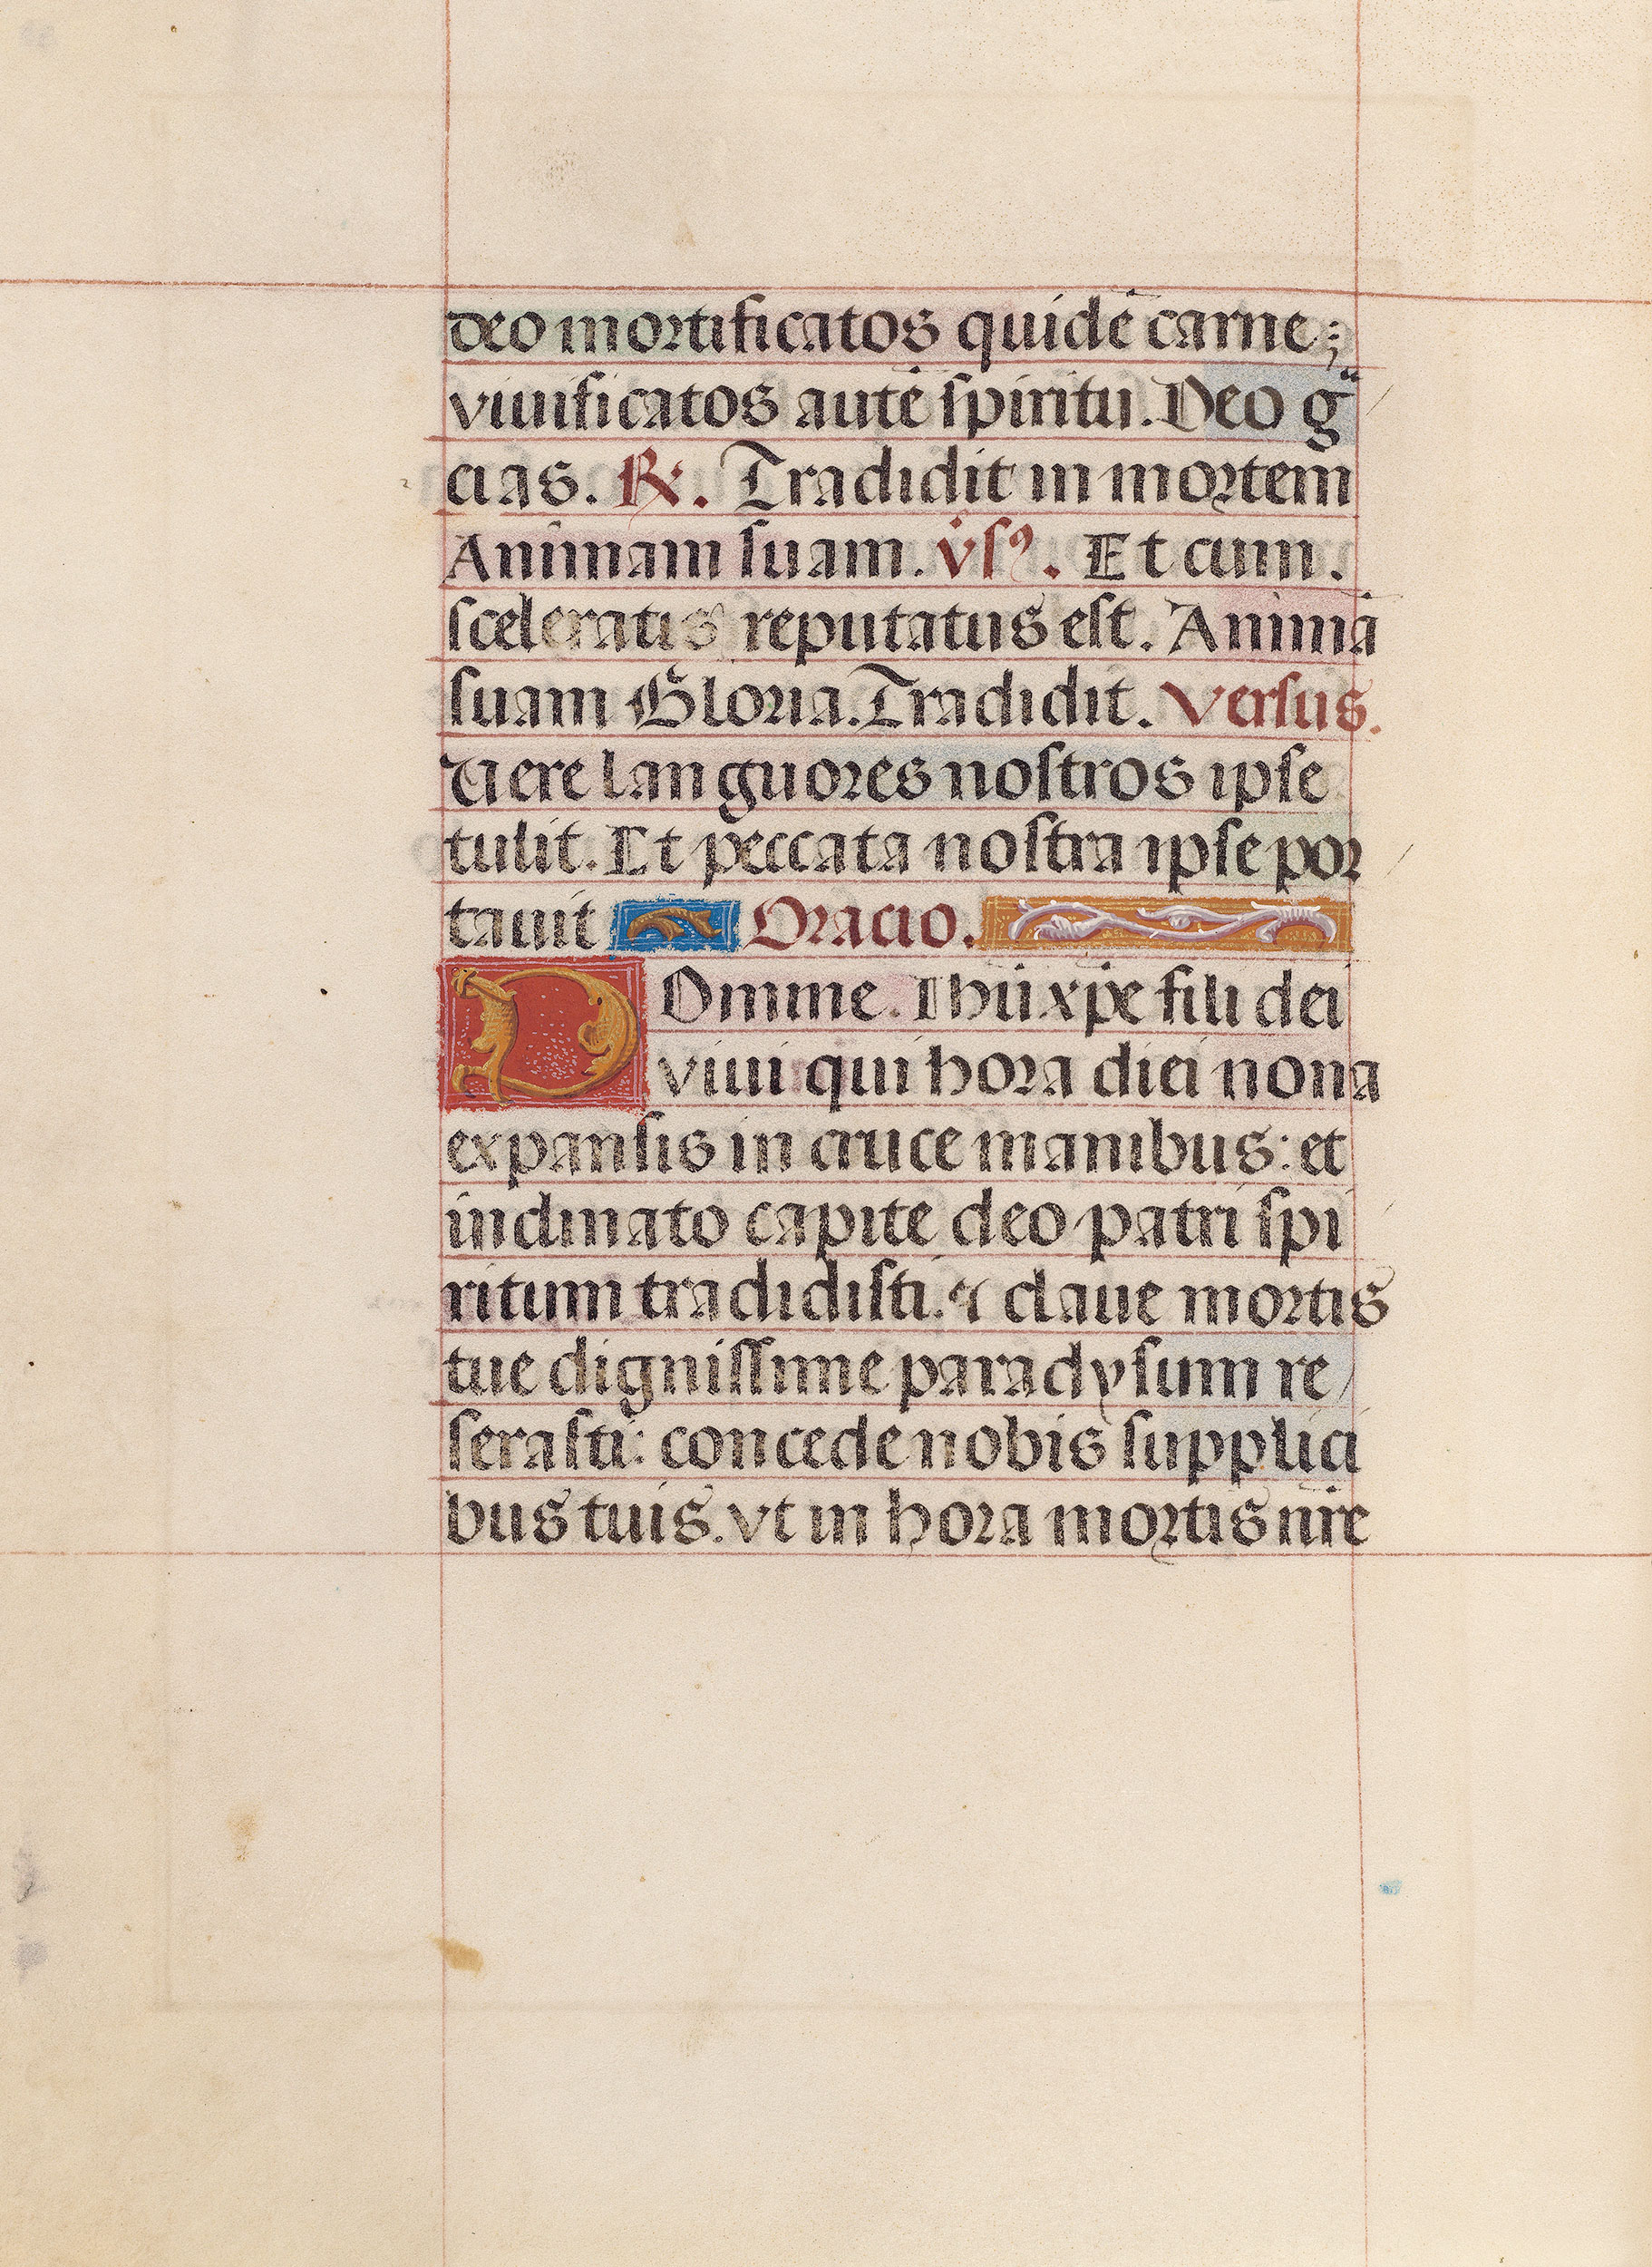 deo mortificatos quidē carne;
viuificatos autē spiritu. Deo gᵃ
cias. ℟. Tradidit in mortem
Animam suam. v̇sꝰ. Et cum.
sceleratis reputatus est. Animā
suam Gloria. Tradidit. versus.
Uere languores nostros ipse
tulit. Et peccata nostra ipse por
tauit Oracio.
DOmine. Ihū xp̄e fili dei
viui qui hora diei nona
expansis in cruce manibus: et
inclinato capite deo patri spi
ritum tradidisti. ⁊ claue mortis
tue dignissime paradysum re
serasti: concede nobis supplici
bus tuis. vt in hora mortis nr̄e